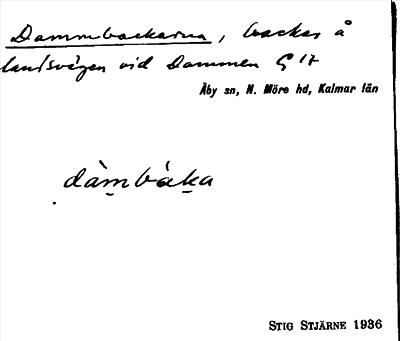 Dammbackarna, backar å
landsvägen vid Dammen G 17
Åby sn, N. Möre hd, Kalmar län
dàmbáka
STIG STJÄRNE 1936